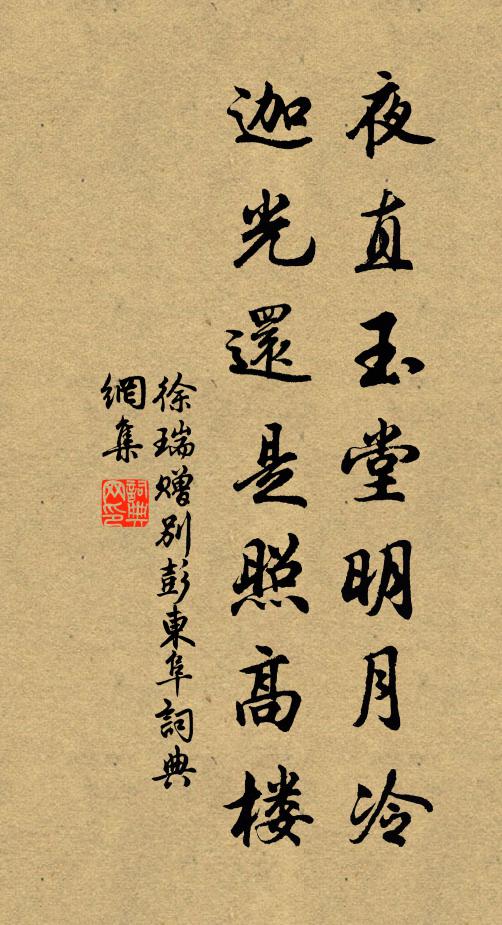 夜直玉堂明月冷
迦光還是照高楼
徐瑞赠别彭東阜詞典
網集
詞典
网印